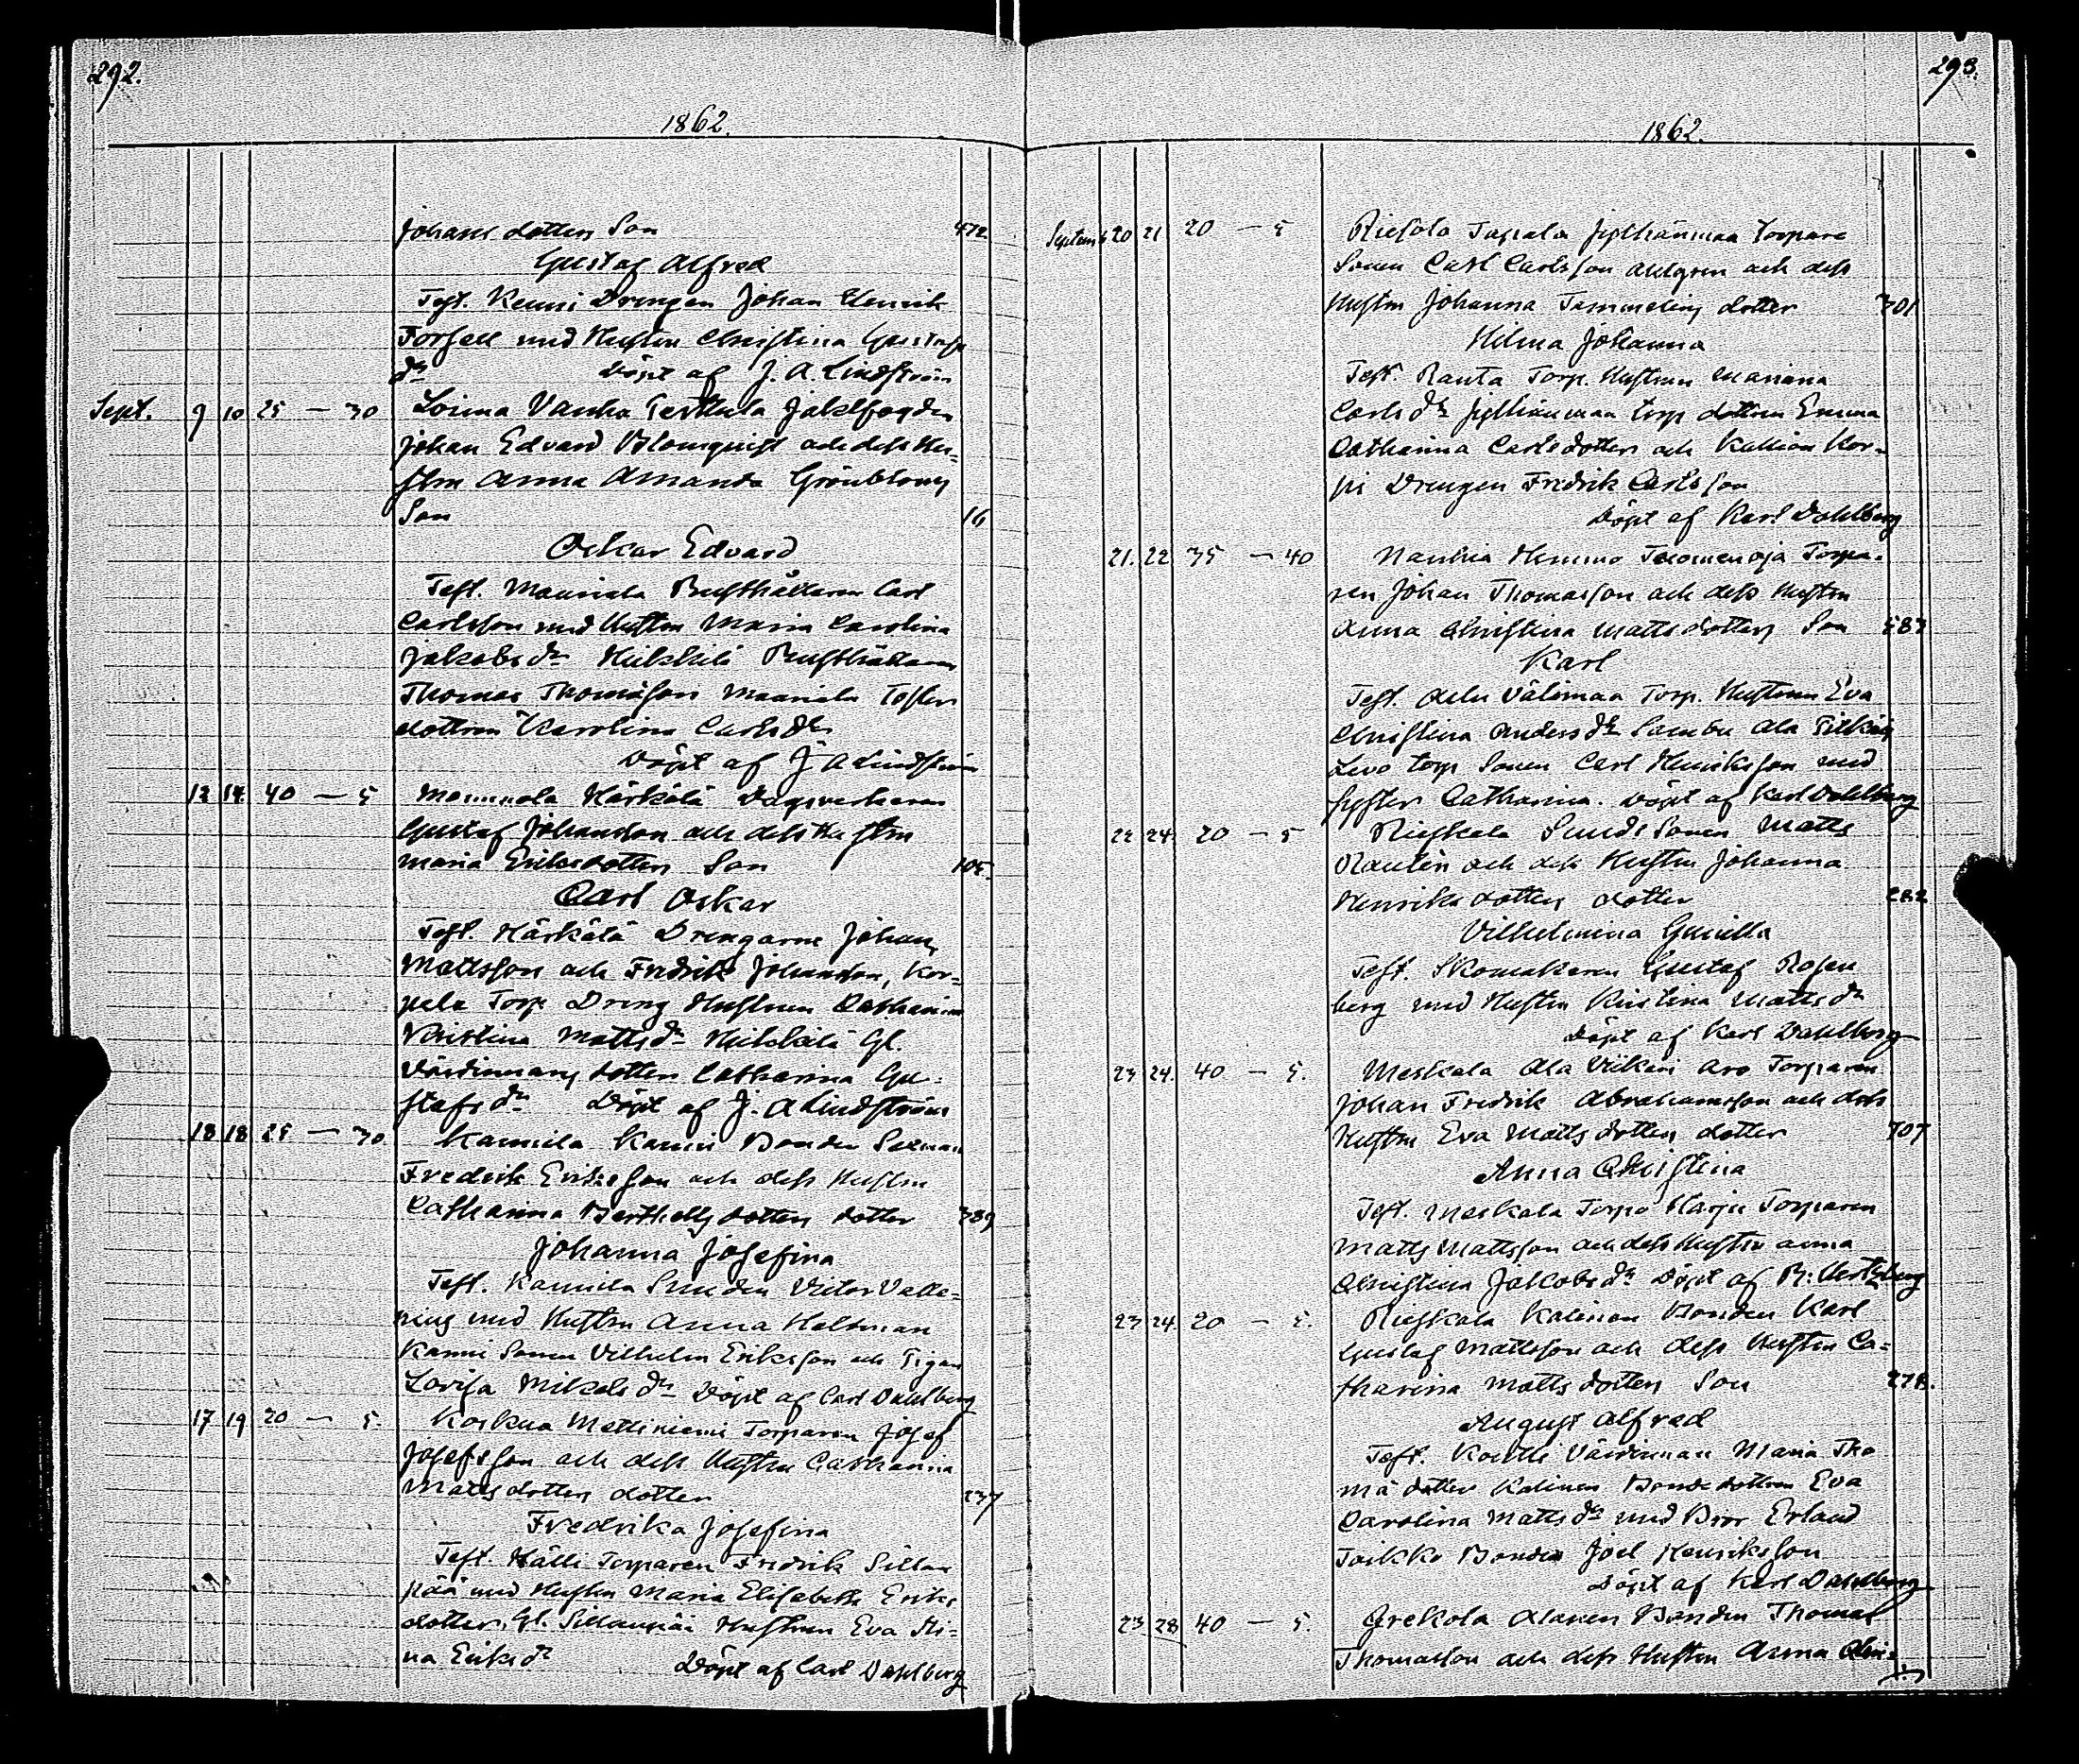 292.
1862.
Johans dotters Son 472
Gustaf Alfred
Test. Kenni Drengen Johan Henrik
Forsell med Hustru Christina Gustafs
dr Döpt af J. A. Lindström
Sept. 9 10 25 — 30 Loima Vanha Perttula
Johan Edvard Blomqvist och dess Hu=
stru Anna Amanda Grönbloms
Son 16
Oskar Edvard
Test. Mauriala Rusthållaren Carl
Carlsson med Hustru Maria Carolina
Jakobs dr Heikkilä Rusthållaren
Thomas Thomasson Mauriala
dottren Karolina Carls dr
Döpt af J A Lindström
40 — 5 Härkälä Dagsverkaren
Gustaf Johansson och dess Hustru
Maria Eriksdotters Son 105.
Carl Oskar
Test. Härkälä Drengarne Johan
Mattsson och Fredrik Johansson, Kor=
pela Torp Dreng Hustrun Catharina
Kristina Matts dr Heikkilä Gl.
Värdinnans dotter Catharina Gu=
stafs dr Döpt af J. A Lindström
18 18 25 — 30 Kaunila Kanni Bonden
Fredrik Eriksson och dess Hustru
Catharina Berthells dotters dotter 389
Johanna Josefina
Test. Kaunila Smeden Victor Valle=
nius med Hustru Anna Holtman
Kanni Sonen Vilhelm Eriksson och Pigan
Lovisa Mikels dr Döpt af Carl Dahlberg
17 19 20 — 5. Koskua Mattiniemi Torparen Josef
Josefsson och dess Hustru Catharina
Matts dotters dotter 237
Fredrika Josefina
Test. Hälli Torparen Fredrik Sillan
pää med Hustru Maria Elisabeth Eriks
dotter, Gl. Sillanpää Hustrun Eva Sti=
na Eriks dr Döpt af Carl Dahlberg
293.
1862.
Septemb 20 21 20 — 5 Torpare
Sonen Carl Carlsson Ahlgren och dess
Hustru Johanna Tammelins dotter 301
Hilma Johanna
Test. Rauta Torp. Hustrun Mariana
Carls dr torp dottren Emma
Catharina Carlsdotter och Kallion Kor=
pi Drengen Fredrik Carlsson
Döpt af Karl Dahlberg
21. 22 35 — 40 Nanhia Hemmo Tuomenoja Torpa=
ren Johan Thomasson och dess Hustru
Anna Christina Matts dotters Son 583
Karl
Test. Välimaa Torp. Hustrun Eva
Christina Anders dr Ala
Levo torp Sonen Carl Henriksson med
syster Catharina. Döpt af Karl Dahlberg
22 24 20 — 5 Rieskala Sonen Matts
Rautin och dess Hustru Johanna
Henriks dotters dotter 282
Vilhelmina Gunilla
Test. Skomakaren Gustaf Rosen
berg med Hustru Kristina Matts dr
Döpt af Karl Dahlberg
23 24. 40 — 5. Meskala Ala Viikari Aro Torparen
Johan Fredrik Abrahamsson och dess
Hustru Eva Matts dotters dotter 707
Anna Christina
Test. Meskala Torpo Harju Torparen
Matts Mattsson och dess Hustru Anna
Christina Jakobs dr Döpt af R. Hertzberg
23 24. 20 — 5. Rieskala Kalinen Bonden Karl
Gustaf Mattsson och dess Hustru Ca=
tharina Matts dotters Son 278.
August Alfred
Test. Värdinnan Maria Tho
mä dotter Kalinen Bonde dottren Eva
Carolina Matts dr med Bror Erland
Toikko Bonden Joel Henriksson
Döpt af Karl Dahlberg
23 28 40 — 5. Jrekola Alanen Bonden Thomas
Thomasson och dess Hustru Anna Chri=